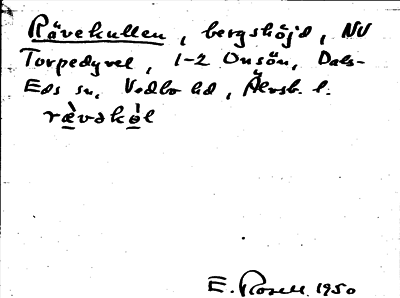 Rävekullen, bergshöjd, NV
Torpedyret, 1-2 Onsön, Dals-
Eds sn, Vedbo hd, Älvsb. l.
rævəkøl
E. Rosell 1950